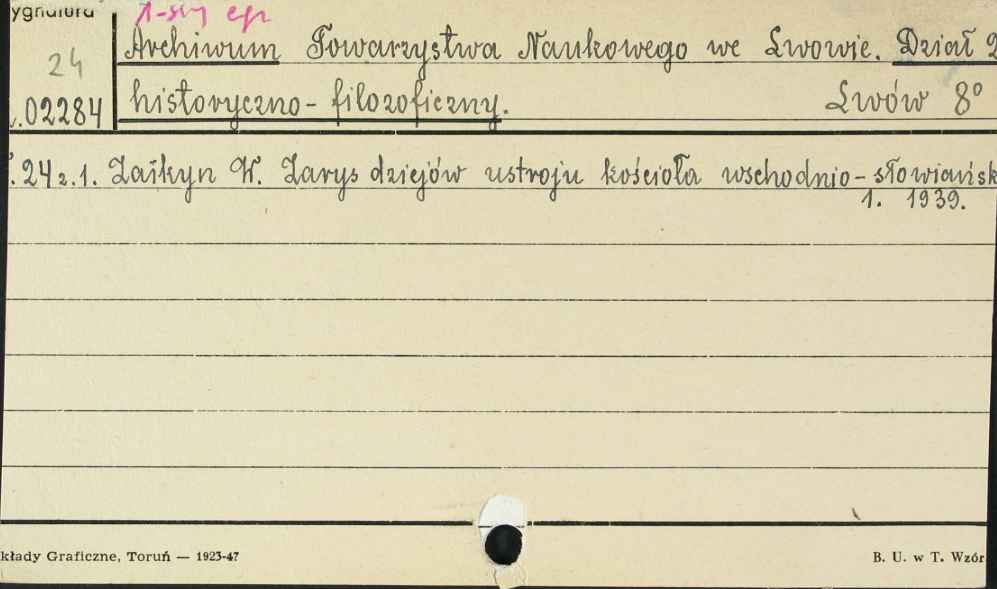 ygnatura 1-szy egz
24 Archiwum Towarzystwa Naukowego we Lwowie. Dział 2
.02284 historyczno-filozoficzny. Lwów 8°
.24 z.1. Zaikyn W. Zarys dziejów ustroju kościoła wschodnio-słowiańsk
1. 1939.
kłady Graficzne, Toruń — 1923-47 B. U. w T. Wzór